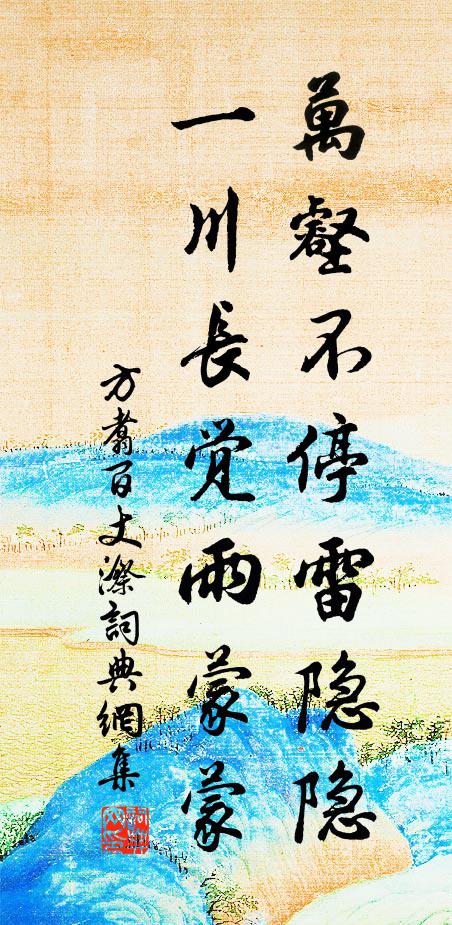 萬壑不停雷隐隐
一川長觉雨蒙蒙
方翥百丈漈詞典網集